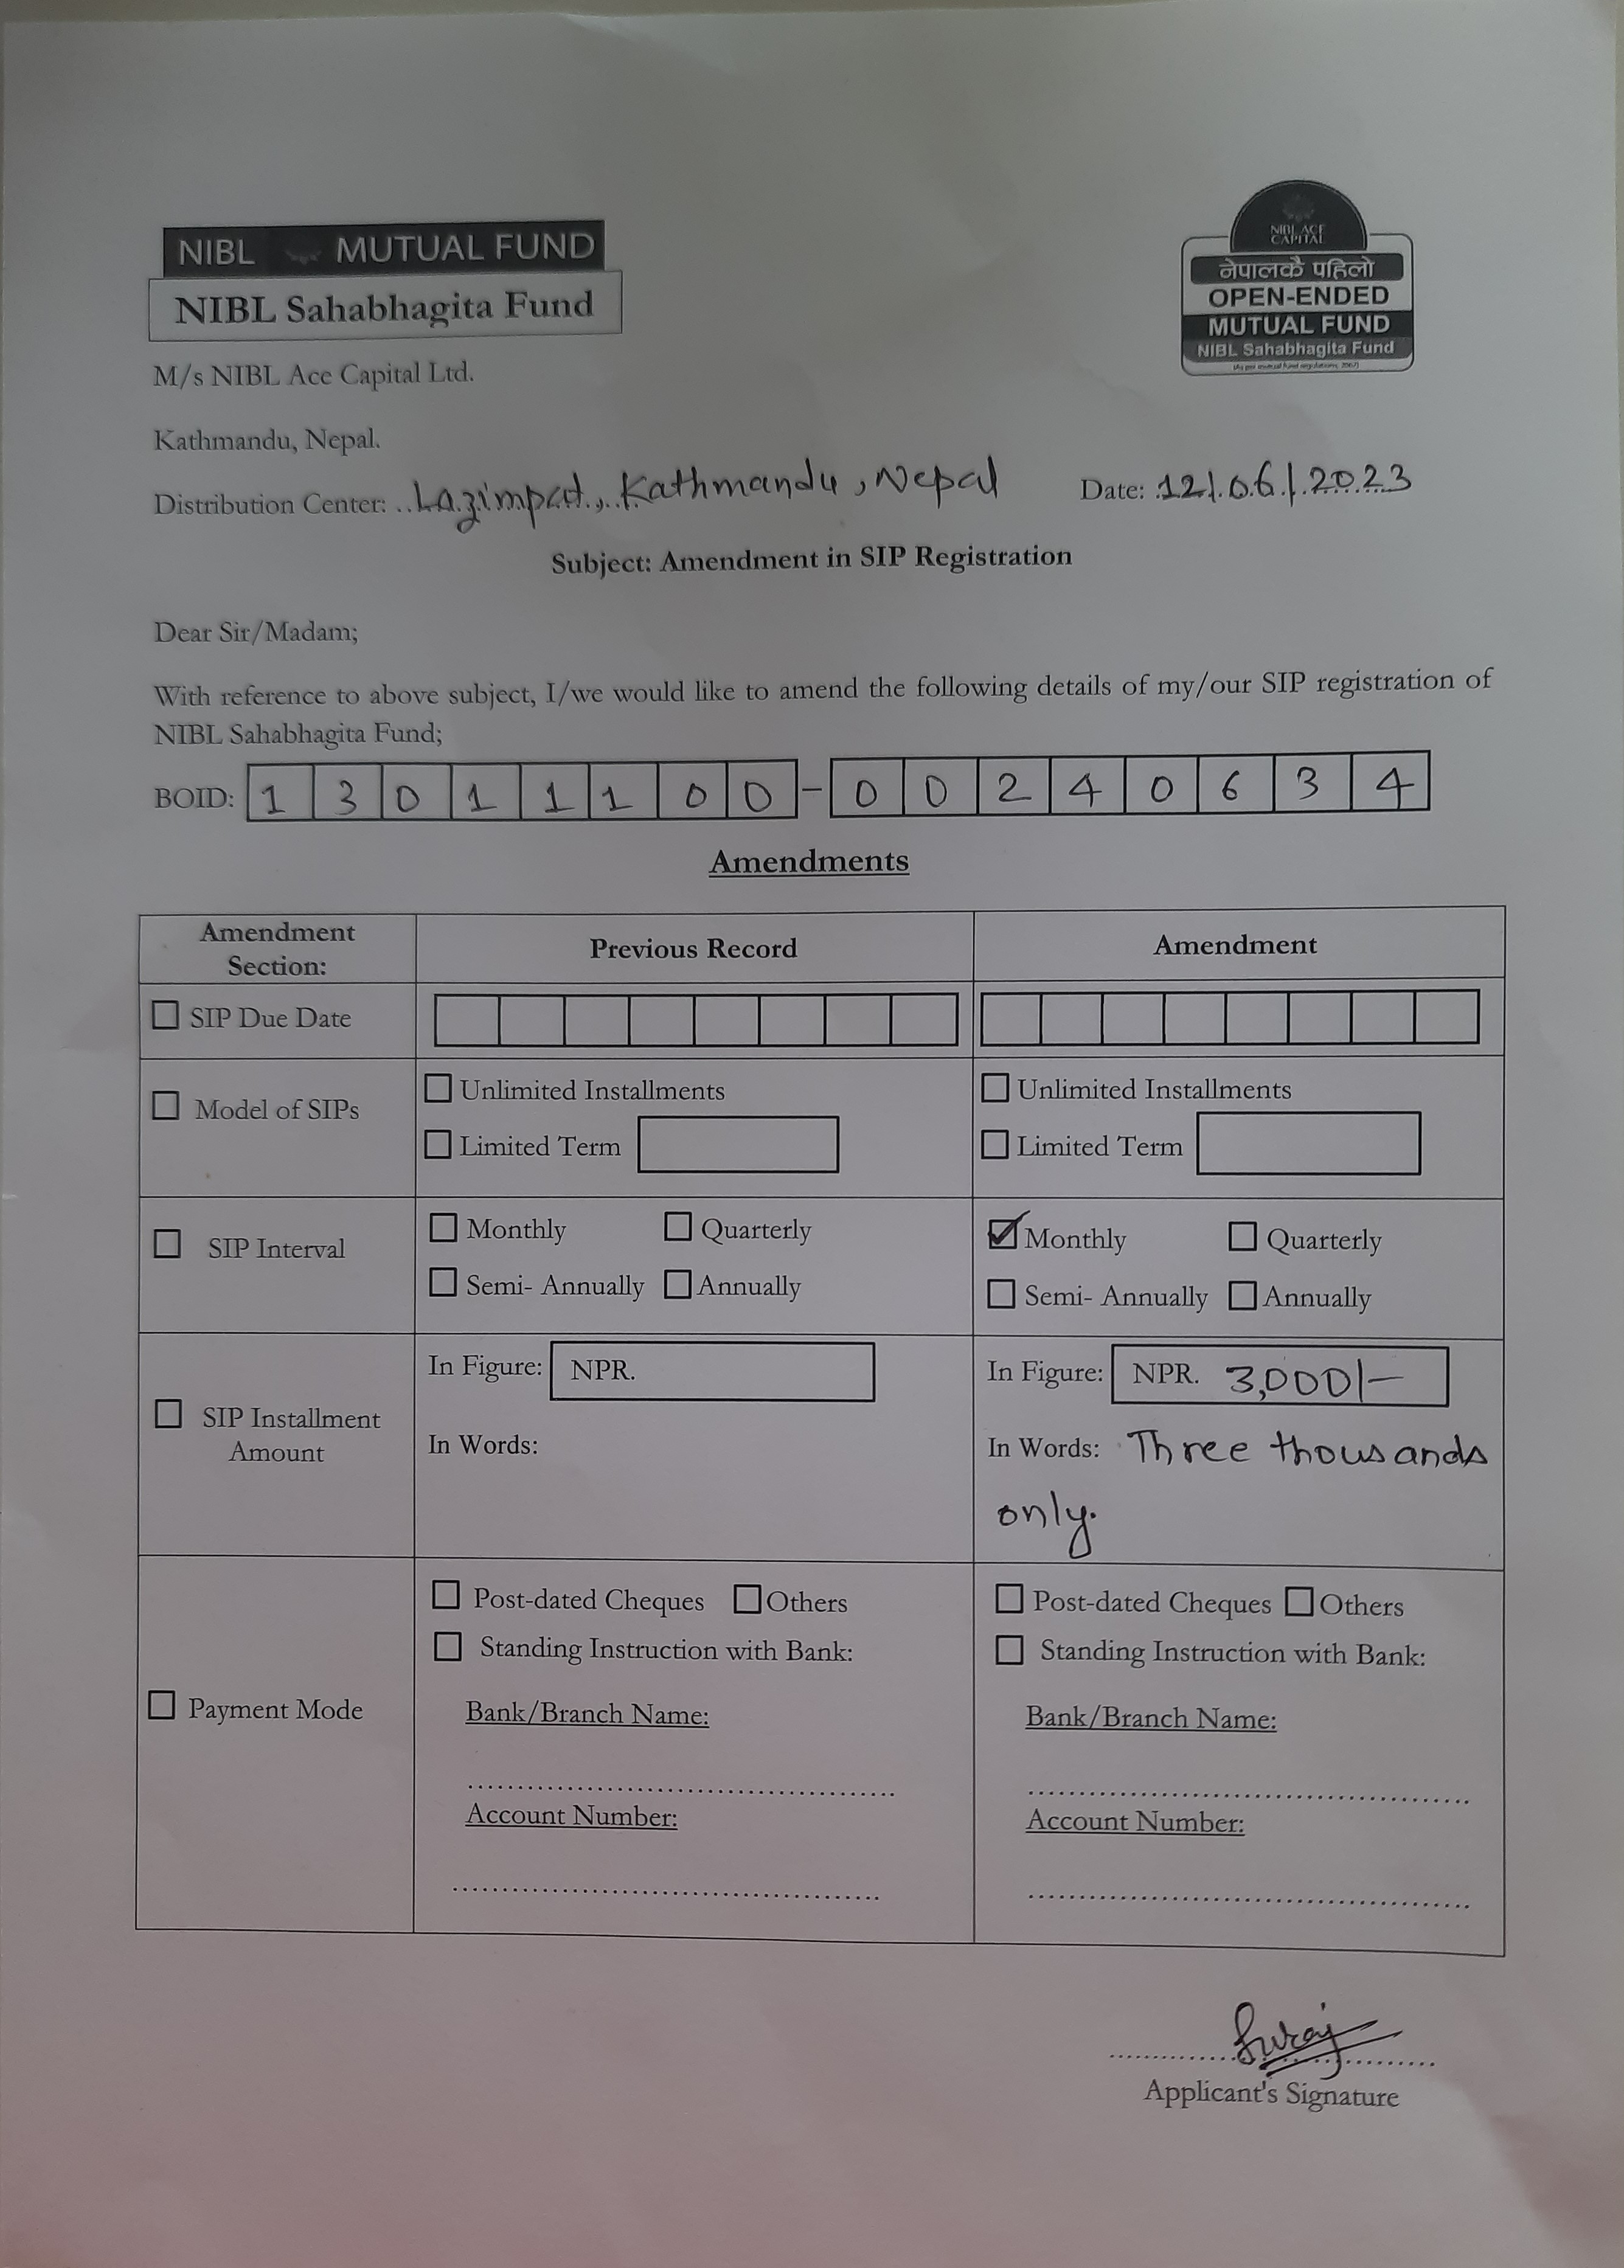 NIBL MUTUAL FUND
NIBL Sahabhagita Fund
NIBL ACE
CAPITAL
नेपालकै पहिलो
OPEN-ENDED
MUTUAL FUND
NIBL Sahabhagita Fund
M/s NIBL Ace Capital Ltd.
Kathmandu, Nepal.
Distribution Center: Lazimpat, Kathmandu, Nepal Date: 12/06/2023
Subject: Amendment in SIP Registration
Dear Sir/Madam;
With reference to above subject, I/we would like to amend the following details of my/our SIP registration of
NIBL Sahabhagita Fund;
BOID: 1 3 0 1 1 1 0 0 - 0 0 2 4 0 6 3 4
Amendments
Amendment
Section:
Previous Record
Amendment
☐ SIP Due Date
☐ Model of SIPs
☐ Unlimited Installments
☐ Limited Term
☐ Unlimited Installments
☐ Limited Term
☐ SIP Interval
☐ Monthly ☐ Quarterly
☐ Semi- Annually ☐ Annually
☑ Monthly ☐ Quarterly
☐ Semi- Annually ☐ Annually
☐ SIP Installment
Amount
In Figure: NPR.
In Words:
In Figure: NPR. 3,000/-
In Words: Three thousands
only.
☐ Payment Mode
☐ Post-dated Cheques ☐ Others
☐ Standing Instruction with Bank:
Bank/Branch Name:
Account Number:
☐ Post-dated Cheques ☐ Others
☐ Standing Instruction with Bank:
Bank/Branch Name:
Account Number:
Suraj
Applicant's Signature